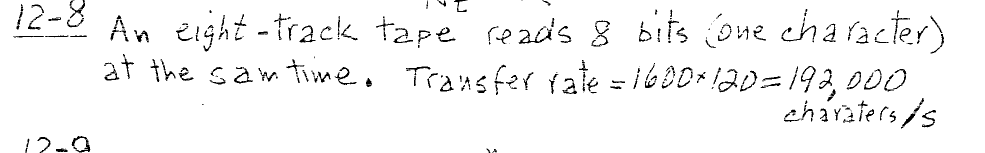 12-8 An eight-track tape reads 8 bits (one character)
at the sam time. Transfer rate = 1600×120 = 192,000
charaters/s
12-9